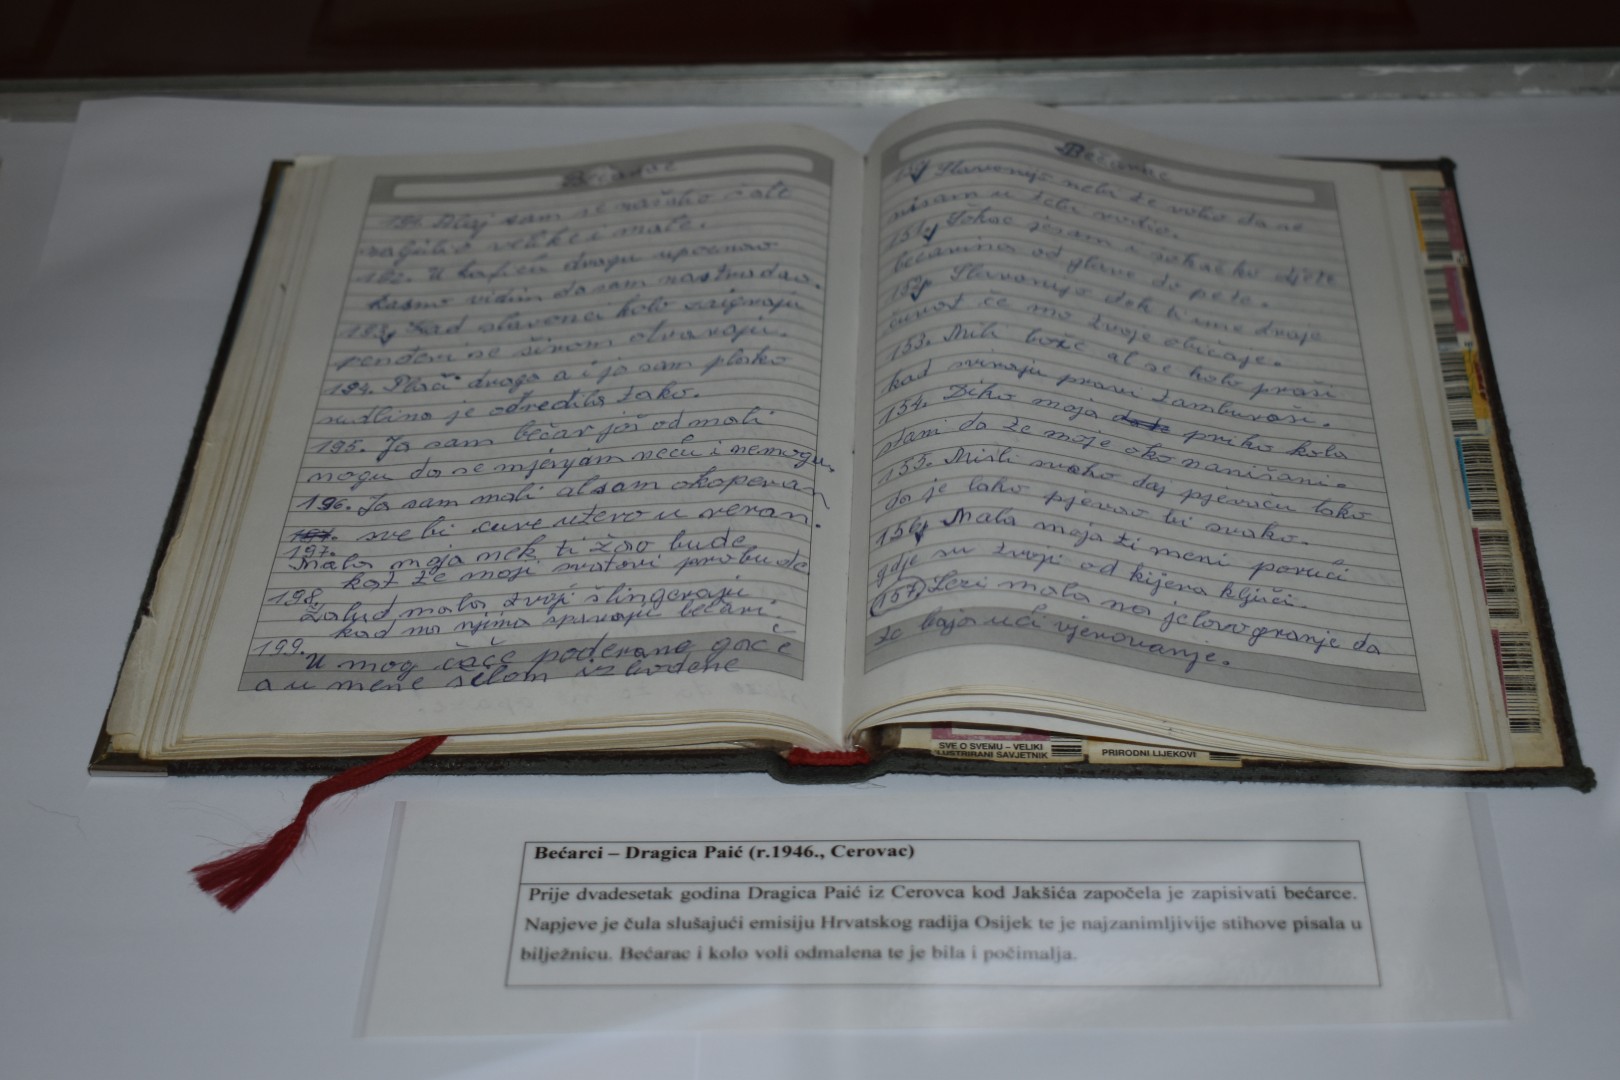 Bećarac
191. Alaj sam se
velike i male.
192. U kafiću dragu upoznao
kasno vidim da sam nastradao.
193. Kad slavonci kolo zaigraju
penđeri se širom otvaraju.
194. Plači draga a i ja sam plako
sudbina je odredila tako.
195. Ja sam bećar još od mali
mogu da se mjenjam neću i nemogu.
196. Ja sam mali al sam okoperan
197. sve bi cure utero u veran.
197.
Mala moja nek ti žao bude
kat te moji svatovi probude
198.
Zalud mala tvoji šlingeraji
kad na njima spavaju bećari.
199.
U mog ćaće poderane gaće
a u mene šelom izvođene
Bećarac
150. Slavonijo neba te voko da se
nisam u tebi rodio.
151. Šokac jesam i šokačko djete
bećarina od glave do pete.
152. Slavonijo dok ti ime traje
čuvat će mo tvoje običaje.
153. Mili bože al se kolo praši
kad sviraju pravi tamburaši.
154. Diko moja preko kola
stani da te moje oko nanišani.
155. Misli svako daj pjevaču lako
da je lako pjevao bi svako.
156. Mala moja ti meni poruči
gdje su tvoji od kijera ključi.
157. Lezi mala na jelovo granje da
te baja uči vjerovanje.
SVE O SVEMU – VELIKI
ILUSTRIRANI SAVJETNIK
PRIRODNI LIJEKOVI
Bećarci – Dragica Paić (r.1946., Cerovac)
Prije dvadesetak godina Dragica Paić iz Cerovca kod Jakšića započela je zapisivati bećarce.
Napjeve je čula slušajući emisiju Hrvatskog radija Osijek te je najzanimljivije stihove pisala u
bilježnicu. Bećarac i kolo voli odmalena te je bila i počimalja.